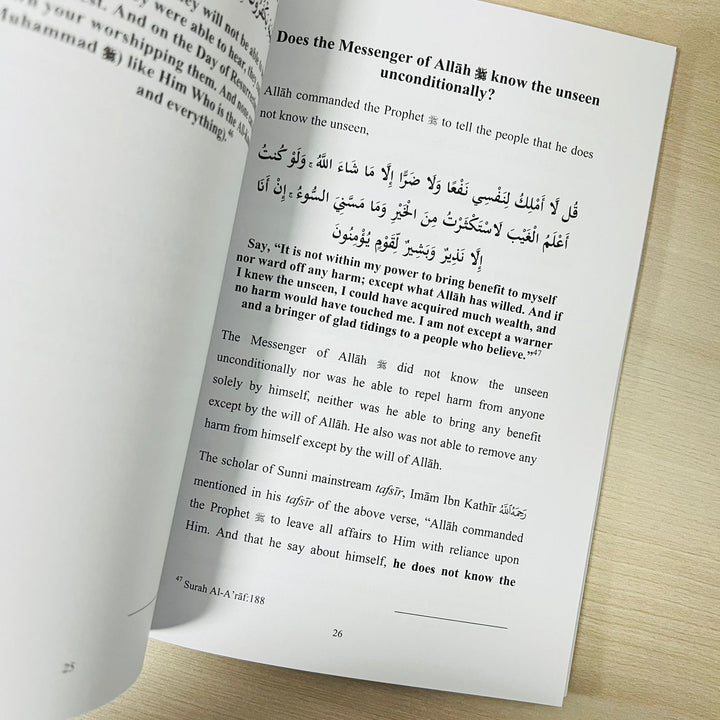 ey will not be able
est. And
ey were able to hear, they
n your worshipping them. And
And on the Day of Resurr
Muhammad ﷺ) like Him Who is the All-
and everything).46
25
Does the Messenger of Allāh ﷺ know the unseen
unconditionally?
Allāh commanded the Prophet ﷺ to tell the people that he does
not know the unseen,
قُل لَّا أَمْلِكُ لِنَفْسِي نَفْعًا وَلَا ضَرًّا إِلَّا مَا شَاءَ اللَّهُ ۚ وَلَوْ كُنتُ
أَعْلَمُ الْغَيْبَ لَاسْتَكْثَرْتُ مِنَ الْخَيْرِ وَمَا مَسَّنِيَ السُّوءُ ۚ إِنْ أَنَا
إِلَّا نَذِيرٌ وَبَشِيرٌ لِّقَوْمٍ يُؤْمِنُونَ
Say, “It is not within my power to bring benefit to myself
nor ward off any harm; except what Allāh has willed. And if
I knew the unseen, I could have acquired much wealth, and
no harm would have touched me. I am not except a warner
and a bringer of glad tidings to a people who believe.”47
The Messenger of Allāh ﷺ did not know the unseen
unconditionally nor was he able to repel harm from anyone
solely by himself, neither was he able to bring any benefit
except by the will of Allāh. He also was not able to remove any
harm from himself except by the will of Allāh.
The scholar of Sunni mainstream tafsīr, Imām Ibn Kathīr رَحِمَهُ اللَّهُ
mentioned in his tafsīr of the above verse, “Allāh commanded
the Prophet ﷺ to leave all affairs to Him with reliance upon
Him. And that he say about himself, he does not know the
47 Surah Al-A’rāf:188
26